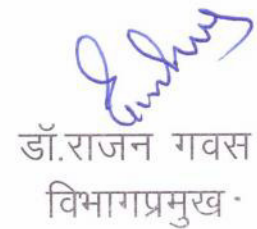 डॉ.राजन गवस
विभागप्रमुख